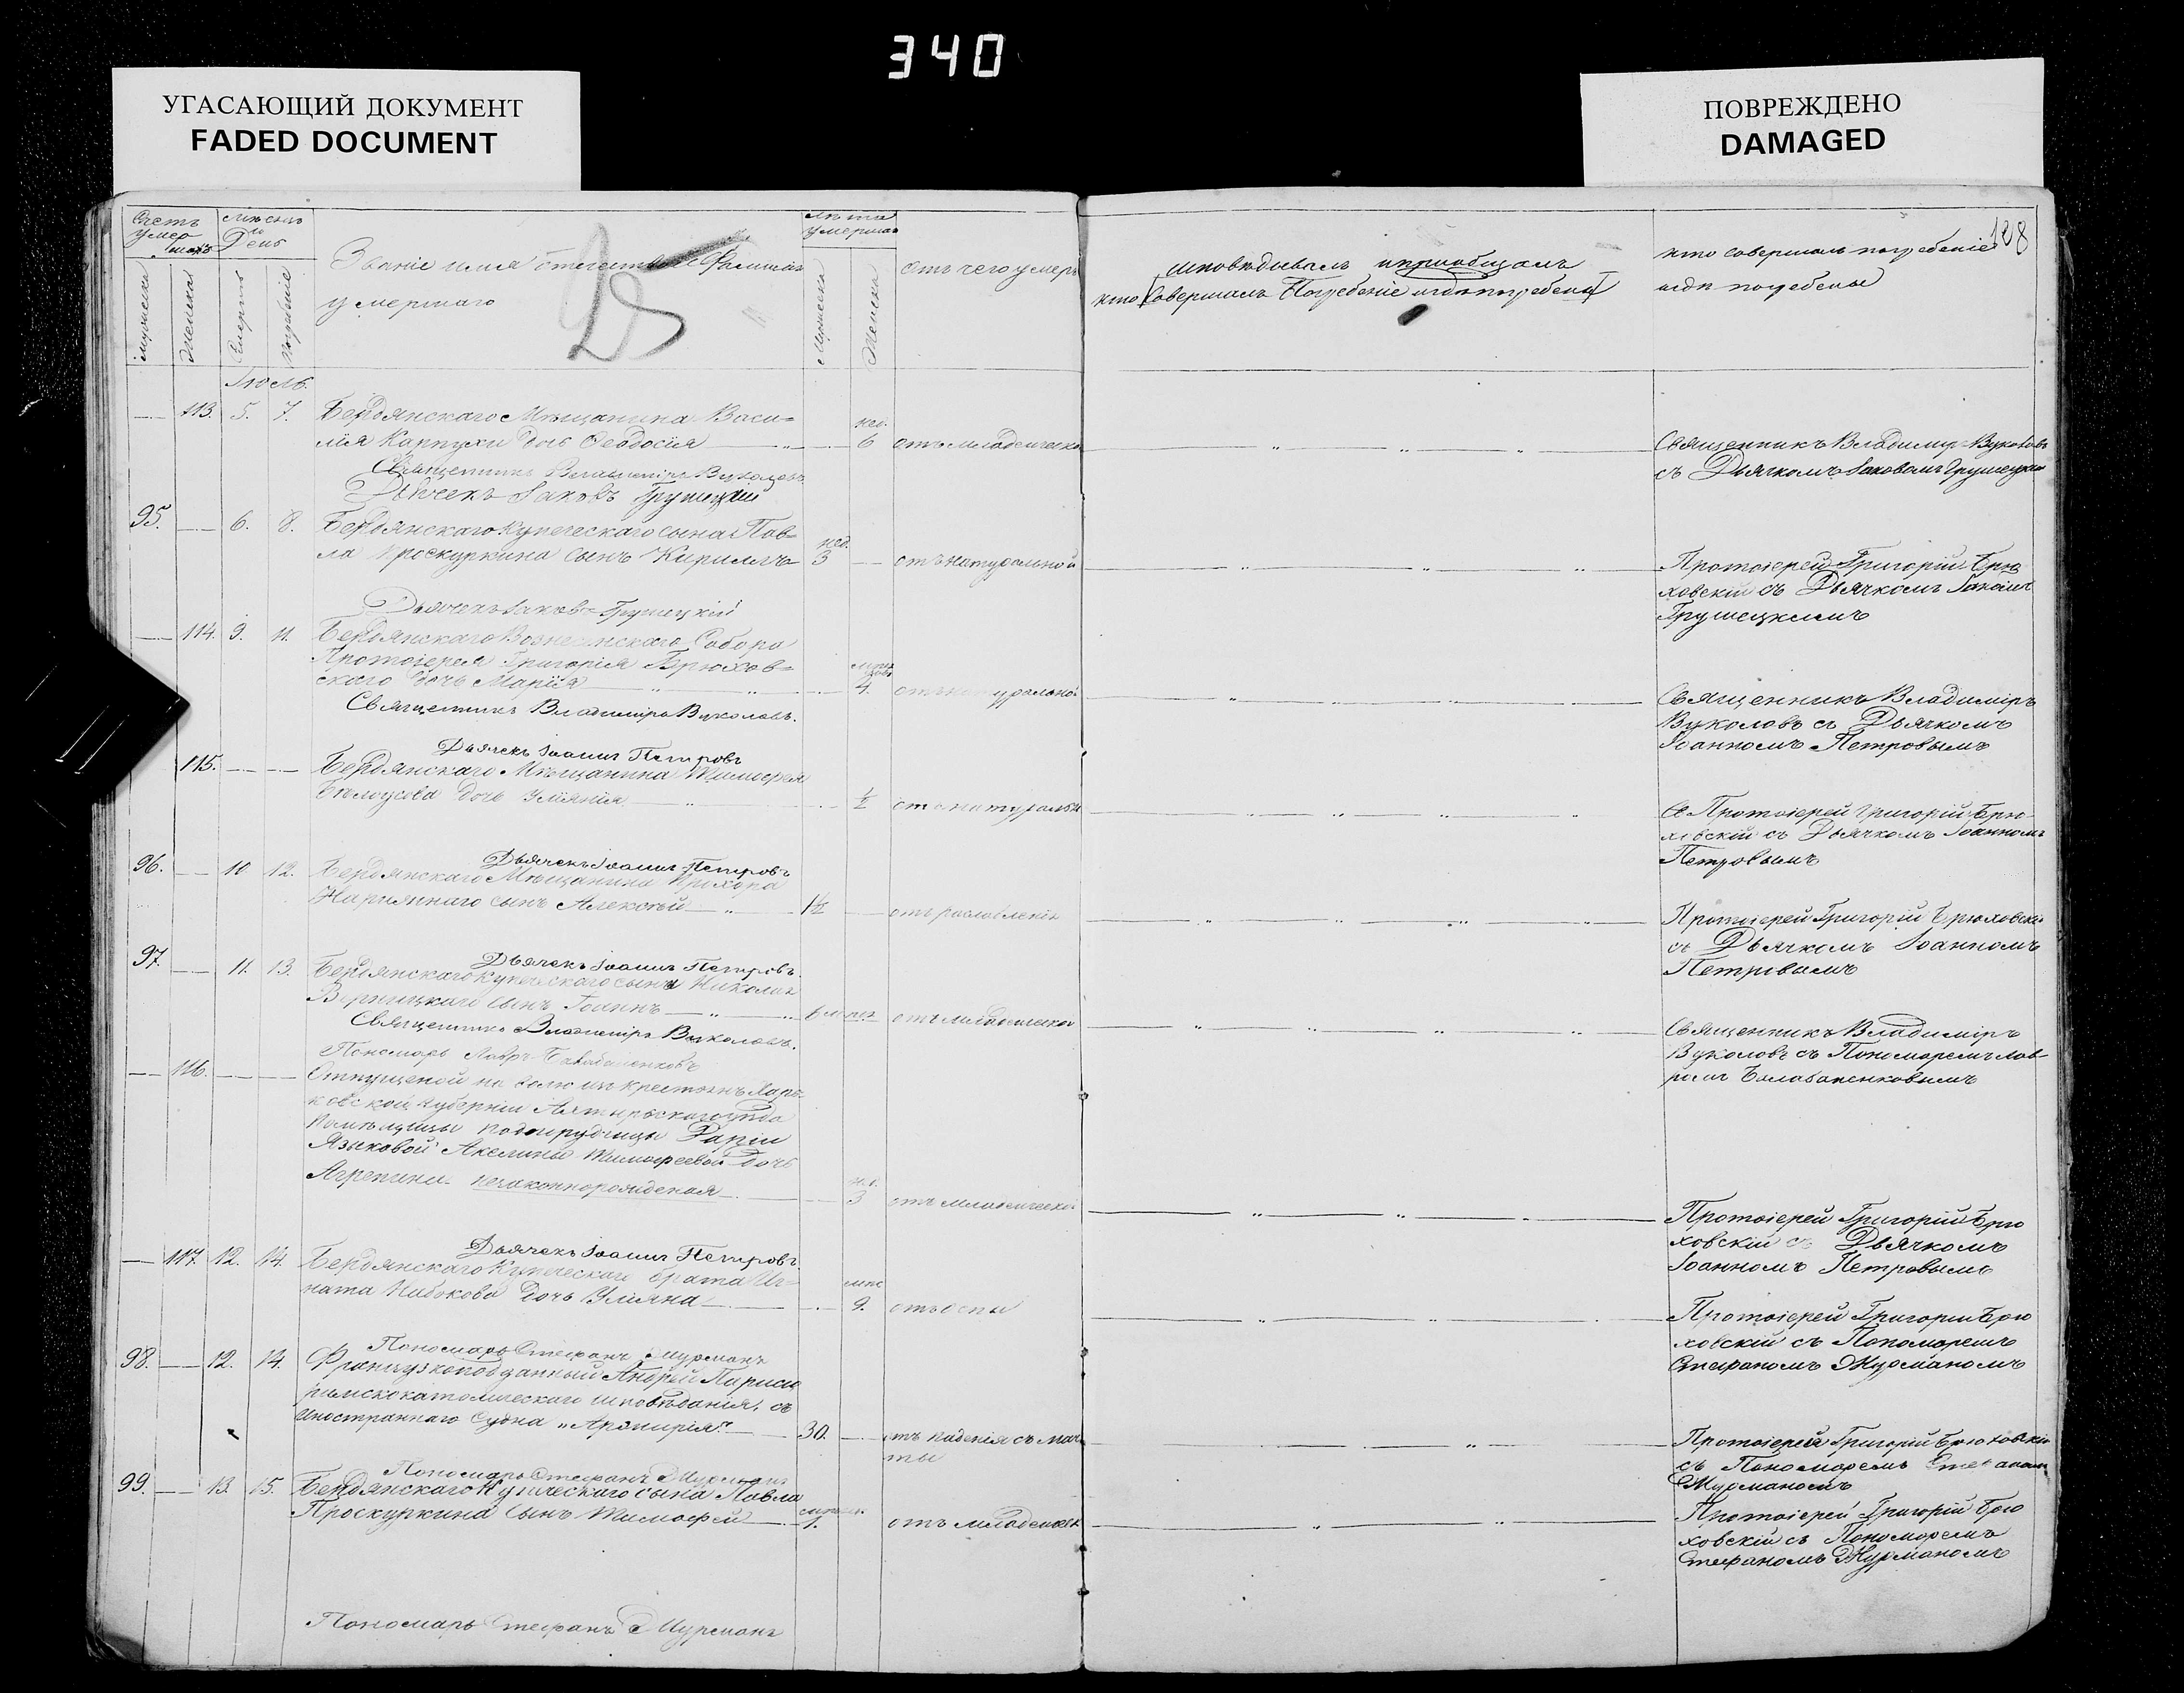 340
УГАСАЮЩИЙ ДОКУМЕНТ
FADED DOCUMENT
ПОВРЕЖДЕНО
DAMAGED
128
Счетъ умершихъ
Мужеска
Женска
Мѣсяцъ и День
Смерти
Погребенія
Званіе имя отечество и фамилія
умершаго
лѣта умершаго
Мужеска
Женска
отъ чего умеръ
исповѣдывалъ и пріобщалъ
кто совершалъ Погребеніе и гдѣ погребены
кто совершалъ погребеніе
и гдѣ погребены
Іюль.
113. 5. 7. Бердянскаго Мѣщанина Васи=
лія Карпухи дочь Ѳеодосія нед. 6 отъ младенческой
Священникъ Владиміръ Вуколовъ
съ Дьячкомъ Іаковомъ Грушецкимъ
Священникъ Владиміръ Вуколовъ
Дьячекъ Іаковъ Грушецкій
95. 6. 8. Бердянскаго Купеческаго сына Пав=
ла Проскуркина сынъ Кириллъ нед. 3 отъ натуральной
Протоіерей Григорій Брю
ховскій съ Дьячкомъ Іаковомъ
Грушецкимъ
Дьячекъ Іаковъ Грушецкій
114. 9. 11. Бердянскаго Вознесенскаго Собора
Протоіерея Григорія Брюхов=
скаго дочь Марія 4. отъ натуральной
Священникъ Владиміръ
Вуколовъ съ Дьячкомъ
Іоанномъ Петровымъ
Священникъ Владиміръ Вуколовъ.
Дьячекъ Іоаннъ Петровъ
115. Бердянскаго Мѣщанина Тимофея
Бѣлоусова дочь Уліянія ½ отъ натуральн
Протоіерей Григорій Брю
ховскій съ Дьячкомъ Іоанномъ
Петровымъ
Дьячекъ Іоаннъ Петровъ
96. 10 12. Бердянскаго Мѣщанина Прохора
сынъ Алексѣй 1½ отъ разслабленія
Протоіерей Григорій Брюховскі
съ Дьячкомъ Іоанномъ
Петровымъ
Дьячекъ Іоаннъ Петровъ.
97. 11. 13. Бердянскаго Купеческаго сына Николая
сынъ Іоаннъ 6 отъ младенческой
Священникъ Владиміръ
Вуколовъ съ Пономоремъ Лав
ромъ Балабаненковымъ
Священникъ Владиміръ Вуколовъ.
Пономарь Лавръ Балабаненковъ
116. Отпущеной на волю изъ крестьянъ
губерніи уѣзда
Помѣщицы Дарьи
Языковой Акелины Тимофеевой дочь
Агрепина незаконнорожденая 3 отъ младенческой
Протоіерей Григорій Брю
ховскій съ Дьячкомъ
Іоанномъ Петровымъ
Дьячекъ Іоаннъ Петровъ.
117. 12. 14. Бердянскаго Купеческаго брата Иг=
ната Набокова дочь Уліяна мѣс 9. отъ оспы
Протоіерей Григорій Брю
ховскій съ Пономоремъ
Стефаномъ Журманомъ
Пономарь Стефанъ Журманъ
98. 12. 14. Французкоподданный Андрей Париси
римскокатолическаго исповѣданія, съ
Иностраннаго Судна 30. отъ паденія съ мач
ты
Протоіерей Григорій Брюховскій
съ Пономоремъ Стефаномъ
Журманомъ
Пономарь Стефанъ Журманъ
99. 13. 15. Бердянскаго Купеческаго сына Павла
Проскуркина сынъ Тимофей 1. отъ младенческ
Протоіерей Григорій Брю
ховскій съ Пономоремъ
Стефаномъ Журманомъ
Пономарь Стефанъ Журманъ